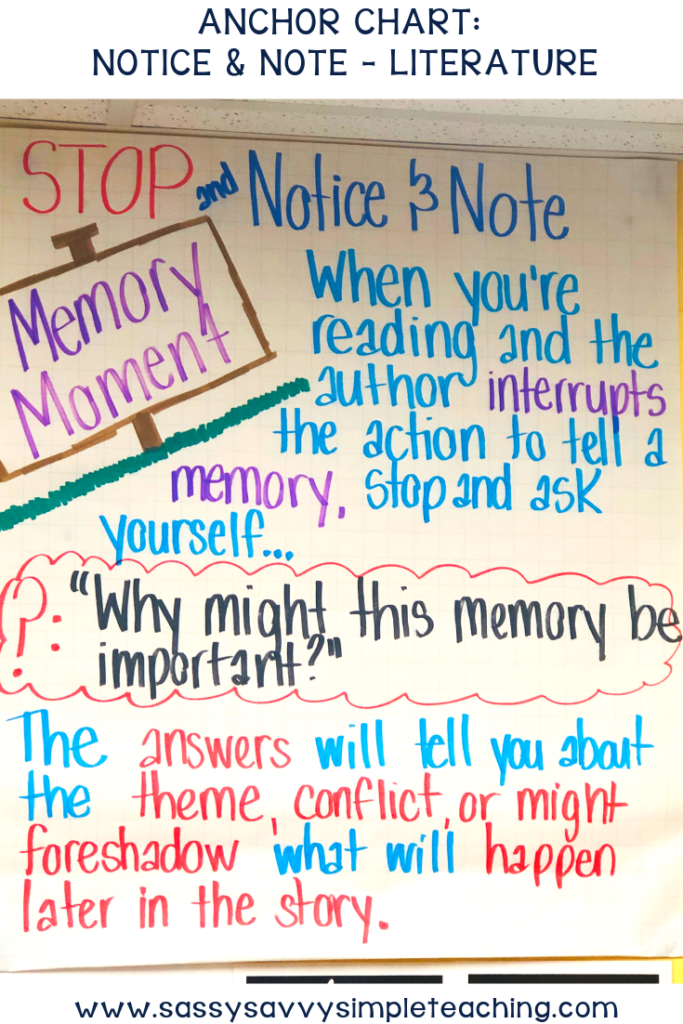 ANCHOR CHART:
NOTICE & NOTE - LITERATURE
STOP and Notice & Note
Memory
Moment
When you're
reading and the
author interrupts
the action to tell a
memory, stop and ask
yourself...
?: "Why might this memory be
important?"
The answers will tell you about
the theme, conflict, or might
foreshadow what will happen
later in the story.
www.sassysavvysimpleteaching.com